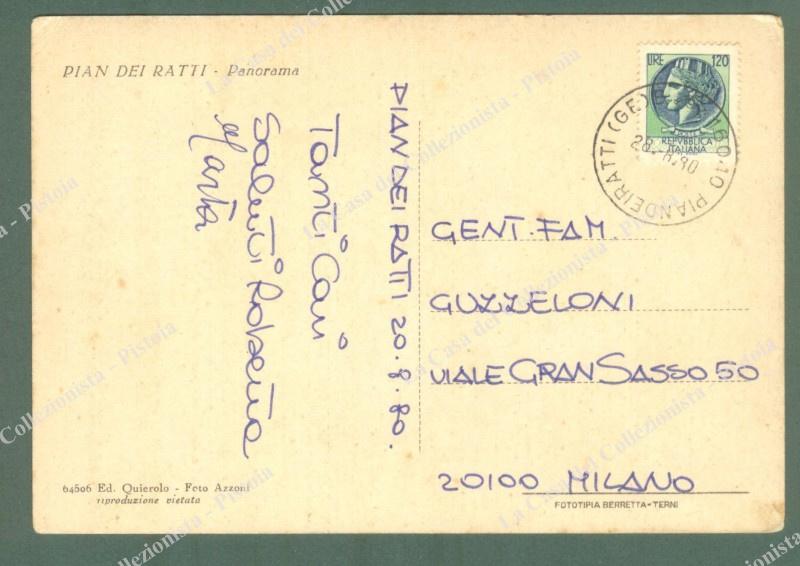 PIAN DEI RATTI - Panorama
PIAN DEI RATTI 20.8.80.
Tanti Cari
Saluti Roberta
Marta
LIRE 120
REPVBBLICA
ITALIANA
16010 PIANDEIRATTI (GE)
GENT. FAM.
GUZZELONI
VIALE GRAN SASSO 50
20100 MILANO
64506 Ed. Quierolo - Foto Azzoni
riproduzione vietata
FOTOTIPIA BERRETTA - TERNI
La Casa del Collezionista - Pistoia